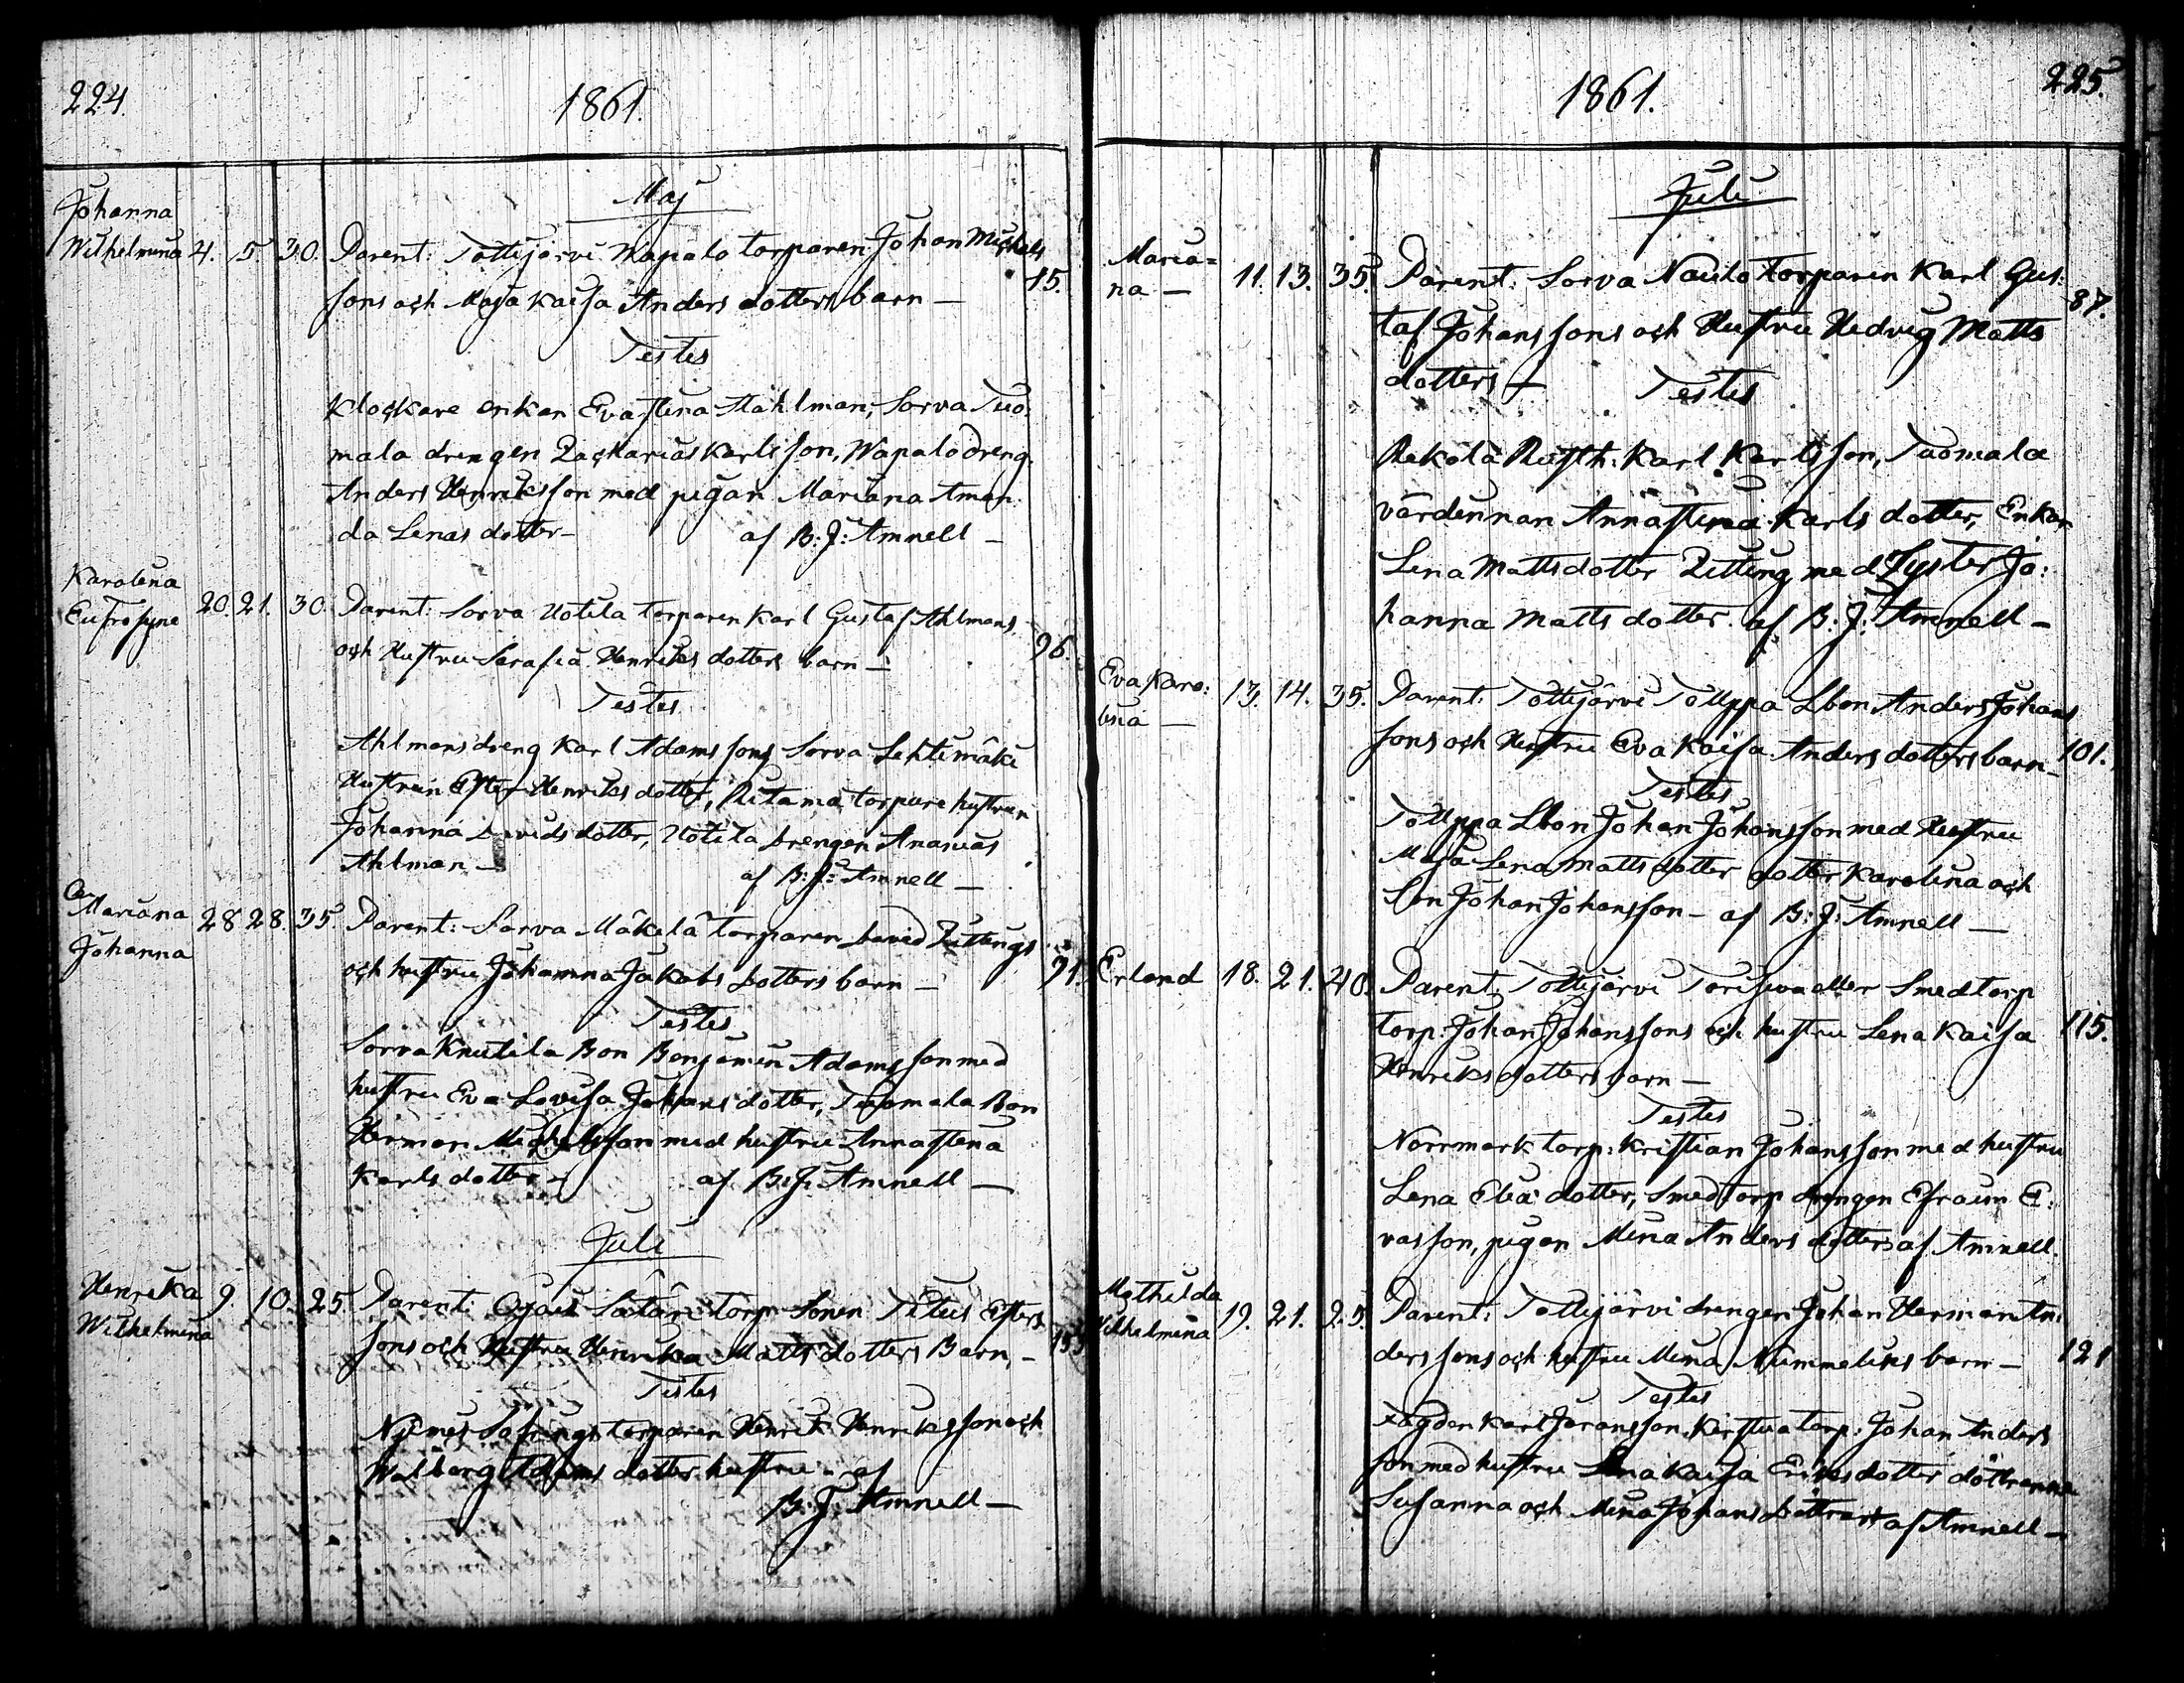 224.
1861.
Maj
Johanna
Wilhelmina 4. 5. 30. Parent: Tottijärvi Wapalo torparen Johan Michels
sons och Maja Kaisa Anders dotters barn — 15.
Testes
Klockare enkan Eva Stina Ståhlman, Sorva Tuo-
mala drengen Zackarias Karlsson, Wapalo dreng.
Anders Henriksson med pigan Mariana Aman
da Lenas dotter — af B: J: Amnell —
Karolina
Eufrosyne 20. 21. 30. Parent: Sorva Uotila torparen Karl Gustaf Ahlmans
och Hustru Serafia Henriks dotters barn — 96.
Testes
Ahlmans dreng Karl Adamsson, Sorva Lehtimäki
Hustrun Ester Henriks dotter, Ritamä torpare hustrun
Johanna Davids dotter, Uotila drengen Ananias
Ahlman — af B: J: Amnell —
Mariana
Johanna 28 28. 35. Parent: Sorva Mäkelä torparen David Zittings
och hustru Johanna Jakobs dotters barn — 91.
Testes
Sorva Knutila Bon Benjamin Adamsson med
hustru Eva Lovisa Johans dotter, Tuomala Bon
Herman Michelsson med hustru Anna Stina
Karls dotter — af B: J: Amnell —
Juli
Henrika
Wilhelmina 9. 10. 25. Parent: Säteri torp Sonen Titus Esters
sons och Hustru Henrika Matts dotters Barn —
Testes
torparen Henrik Henriksson och
Walborg Adams dotter hustru — af
B: J: Amnell —
225.
1861.
Juli
Maria-
na — 11. 13. 35. Parent: Sorva Naulo torparen Karl Gus-
taf Johanssons och Hustru Hedvig Matts 87.
dotters — Testes
Rekola Rusth: Karl Karlsson, Tuomala
värdinnan Anna Stina Karls dotter, Enkan
Lena Matts dotter Zitting med Syster Jo-
hanna Matts dotter. af B: J: Amnell —
Eva Karo-
lina — 13. 14. 35. Parent: Tottijärvi Tolppa Lbon Anders Johans
sons och Hustru Eva Kaisa Anders dotters barn — 101.
Testes
Tolppa Lbon Johan Johansson med Hustru
Maja Lena Matts dotter dotter Karolina och
Son Johan Johansson — af B: J: Amnell —
Erland 18. 21. 40. Parent: Tottijärvi Toriseva eller Smedtorp
torp: Johan Johanssons och hustru Lena Kaisa 115.
Henriks dotters barn —
Testes
Norrmark torp: Kristian Johansson med hustru
Lena Eva dotter, Smedtorp drengen Efraim E-
vasson, pigan Mina Anders dotter af Amnell.
Mathilda
Wilhelmina 19. 21. 25. Parent: Tottijärvi drengen Johan Herman An-
derssons och hustru Mina Nummelins barn — 121
Testes
Fogden Karl Göransson, torp: Johan Anders
son med hustru Lena Kaisa Eriks dotter döttrarna
Susanna och Mina Johans döttrar af Amnell —